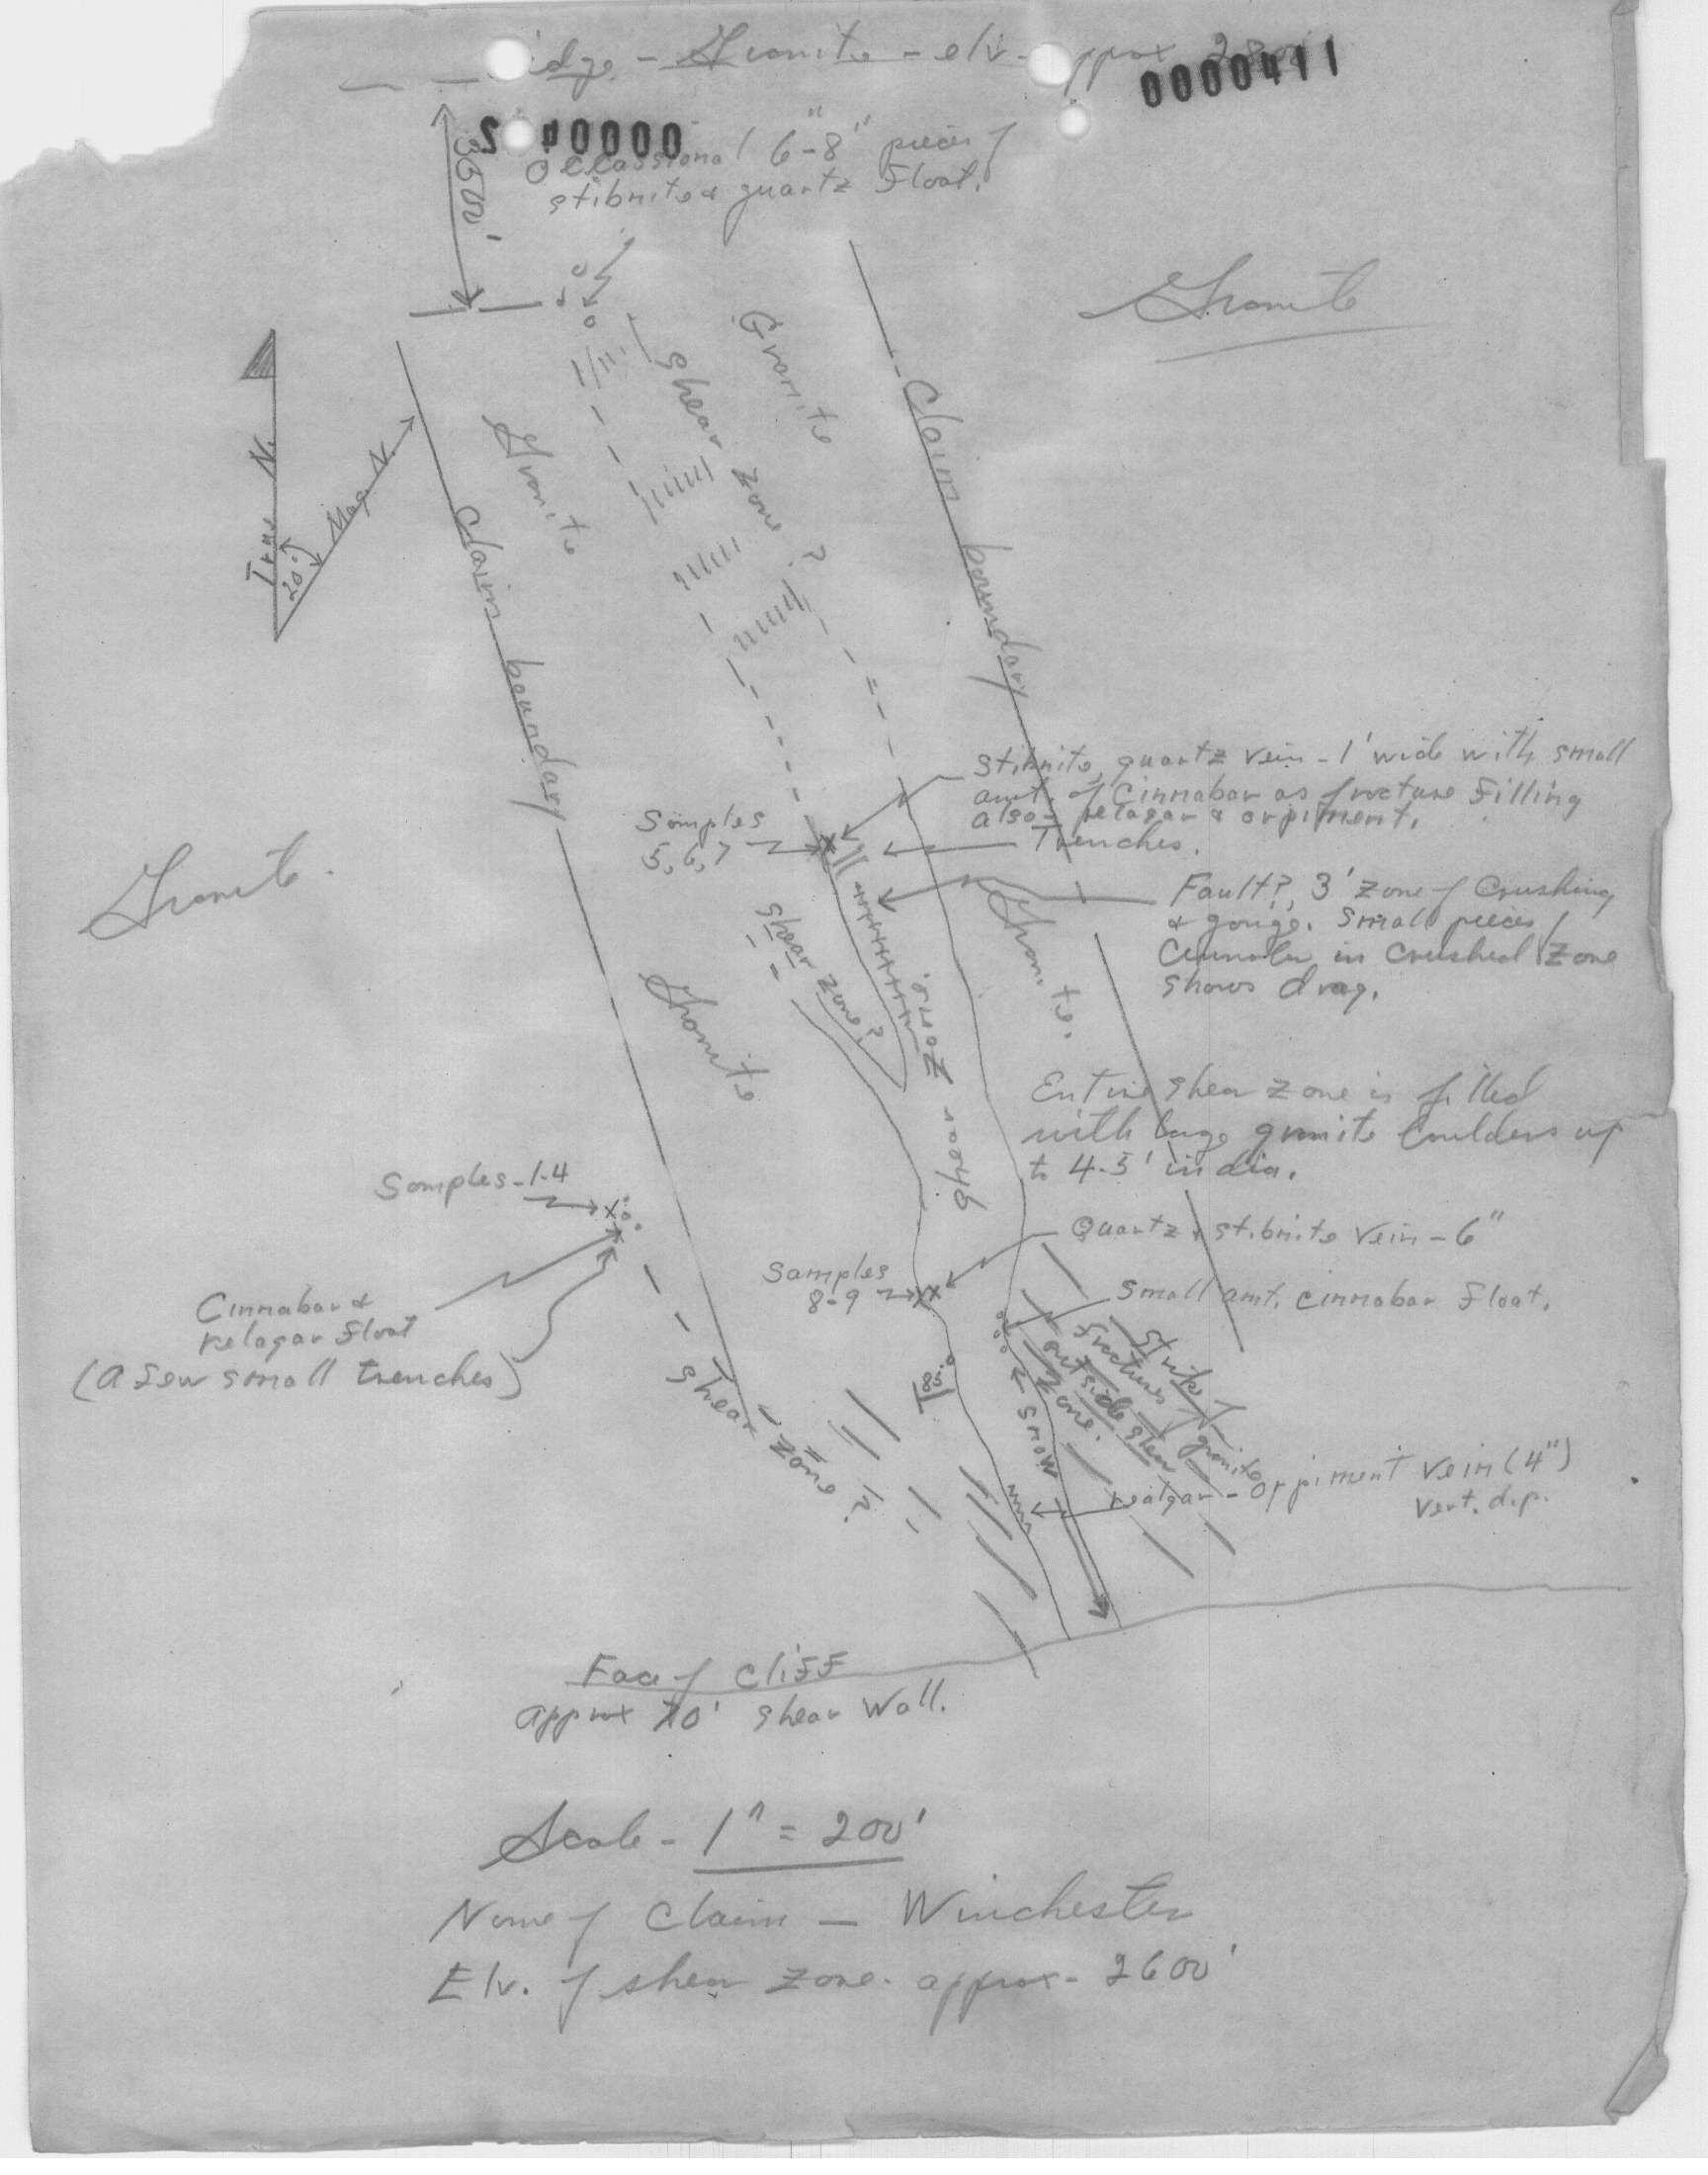 idge - Granite - elv. pprox
0000411
0000
Occassional 6"-8" pieces of
stibnite & quartz Float.
3500'
Granite
Granite
shear zone ?
Granite
Claim boundary
True N.
Mag. N.
20°
Claim boundary
Stibnite, quartz vein - 1' wide with small
amt. of Cinnabar as fracture Filling
also - relagar & orpiment.
Trenches.
Samples
5, 6, 7
Fault?, 3' zone of Crushing
& gouge. Small pieces of
Cinnabar in crushed zone
shows drag.
Granite.
shear zone?
Granite.
Granite
Shear Zone.
Entire shear zone is filled
with large granite boulders up
to 4-5' in dia.
Samples - 1-4
Quartz & stibnite vein - 6"
Samples
8-9
Small amt. cinnabar Float.
Cinnabar &
relagar float
(a few small trenches)
Strike of
fractures in granite
outside shear
zone.
85°
Snow
shear zone ?
realgar - orpiment vein (4")
vert. dip.
Face of Cliff
approx 70' shear wall.
Scale - 1" = 200'
Name of Claim - Winchester
Elv. of shear zone. approx - 2600'